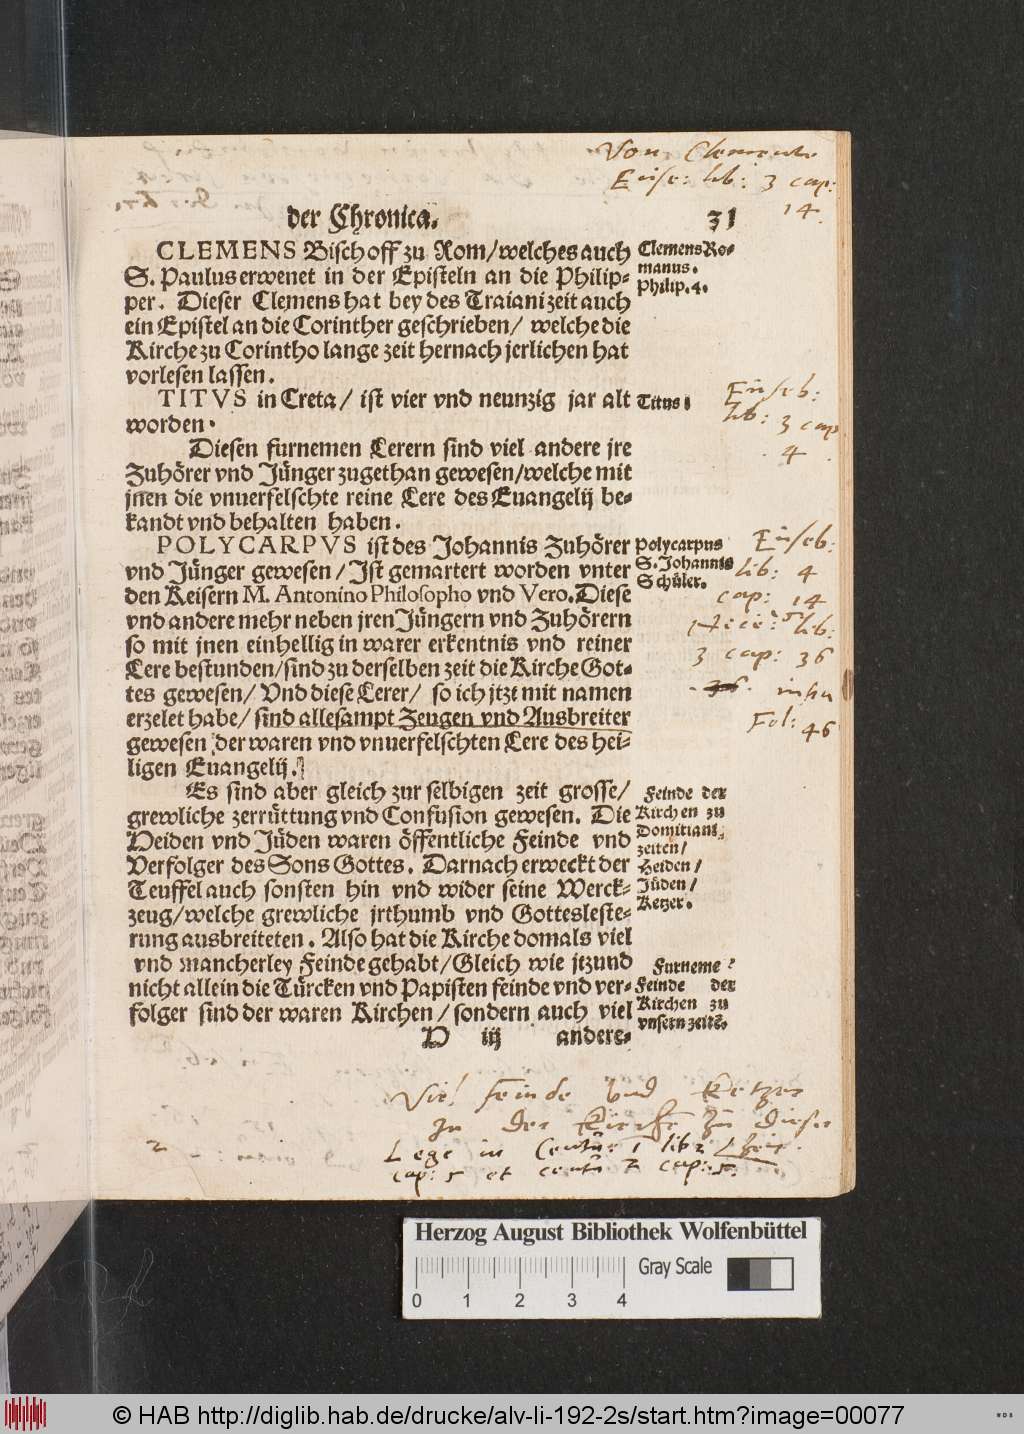 Von Clemente
Euse: lib: 3 cap:
14
der Chronica. 31
CLEMENS Bischoff zu Rom/welches auch
S. Paulus erwenet in der Episteln an die Philip-
per. Dieser Clemens hat bey des Traiani zeit auch
ein Epistel an die Corinther geschrieben/ welche die
Kirche zu Corintho lange zeit hernach jerlichen hat
vorlesen lassen.
Clemens Ro-
manus.
Philip. 4.
TITVS in Creta/ ist vier vnd neunzig jar alt
worden.
Titus.
Euseb:
lib: 3 cap
4
Diesen furnemen Lerern sind viel andere jre
Zuhörer vnd Jünger zugethan gewesen/welche mit
jnen die vnuerfelschte reine Lere des Euangelij be-
kandt vnd behalten haben.
POLYCARPVS ist des Johannis Zuhörer
vnd Jünger gewesen/ Ist gemartert worden vnter
den Keisern M. Antonino Philosopho vnd Vero. Diese
vnd andere mehr neben jren Jüngern vnd Zuhörern
so mit jnen einhellig in warer erkentnis vnd reiner
Lere bestunden/sind zu derselben zeit die Kirche Got-
tes gewesen/ Vnd diese Lerer/ so ich jtzt mit namen
erzelet habe/ sind allesampt Zeugen vnd Ausbreiter
gewesen der waren vnd vnuerfelschten Lere des hei-
ligen Euangelij.
Polycarpus
S. Johannis
Schüler.
Euseb:
lib: 4
cap: 14
lib:
3 cap: 36
infra
Fol: 46
Es sind aber gleich zur selbigen zeit grosse/
grewliche zerrüttung vnd Confusion gewesen. Die
Heiden vnd Jüden waren öffentliche Feinde vnd
Verfolger des Sons Gottes. Darnach erweckt der
Teuffel auch sonsten hin vnd wider seine Werck-
zeug/welche grewliche jrthumb vnd Gottesleste-
rung ausbreiteten. Also hat die Kirche domals viel
vnd mancherley Feinde gehabt/Gleich wie jtzund
nicht allein die Türcken vnd Papisten feinde vnd ver-
folger sind der waren Kirchen/ sondern auch viel
Feinde der
Kirchen zu
Domitiani
zeiten/
Heiden/
Jüden/
Ketzer.
Furneme
Feinde der
Kirchen zu
vnsern zeitē.
H iij andere-
Viel feinde vnd Ketzer
In der Kirche zu dieser
Lege in Centur: 1 lib: 2 Zeit.
cap: 5 et centu 2 cap: 5.
Herzog August Bibliothek Wolfenbüttel
Gray Scale
0 1 2 3 4
© HAB http://diglib.hab.de/drucke/alv-li-192-2s/start.htm?image=00077